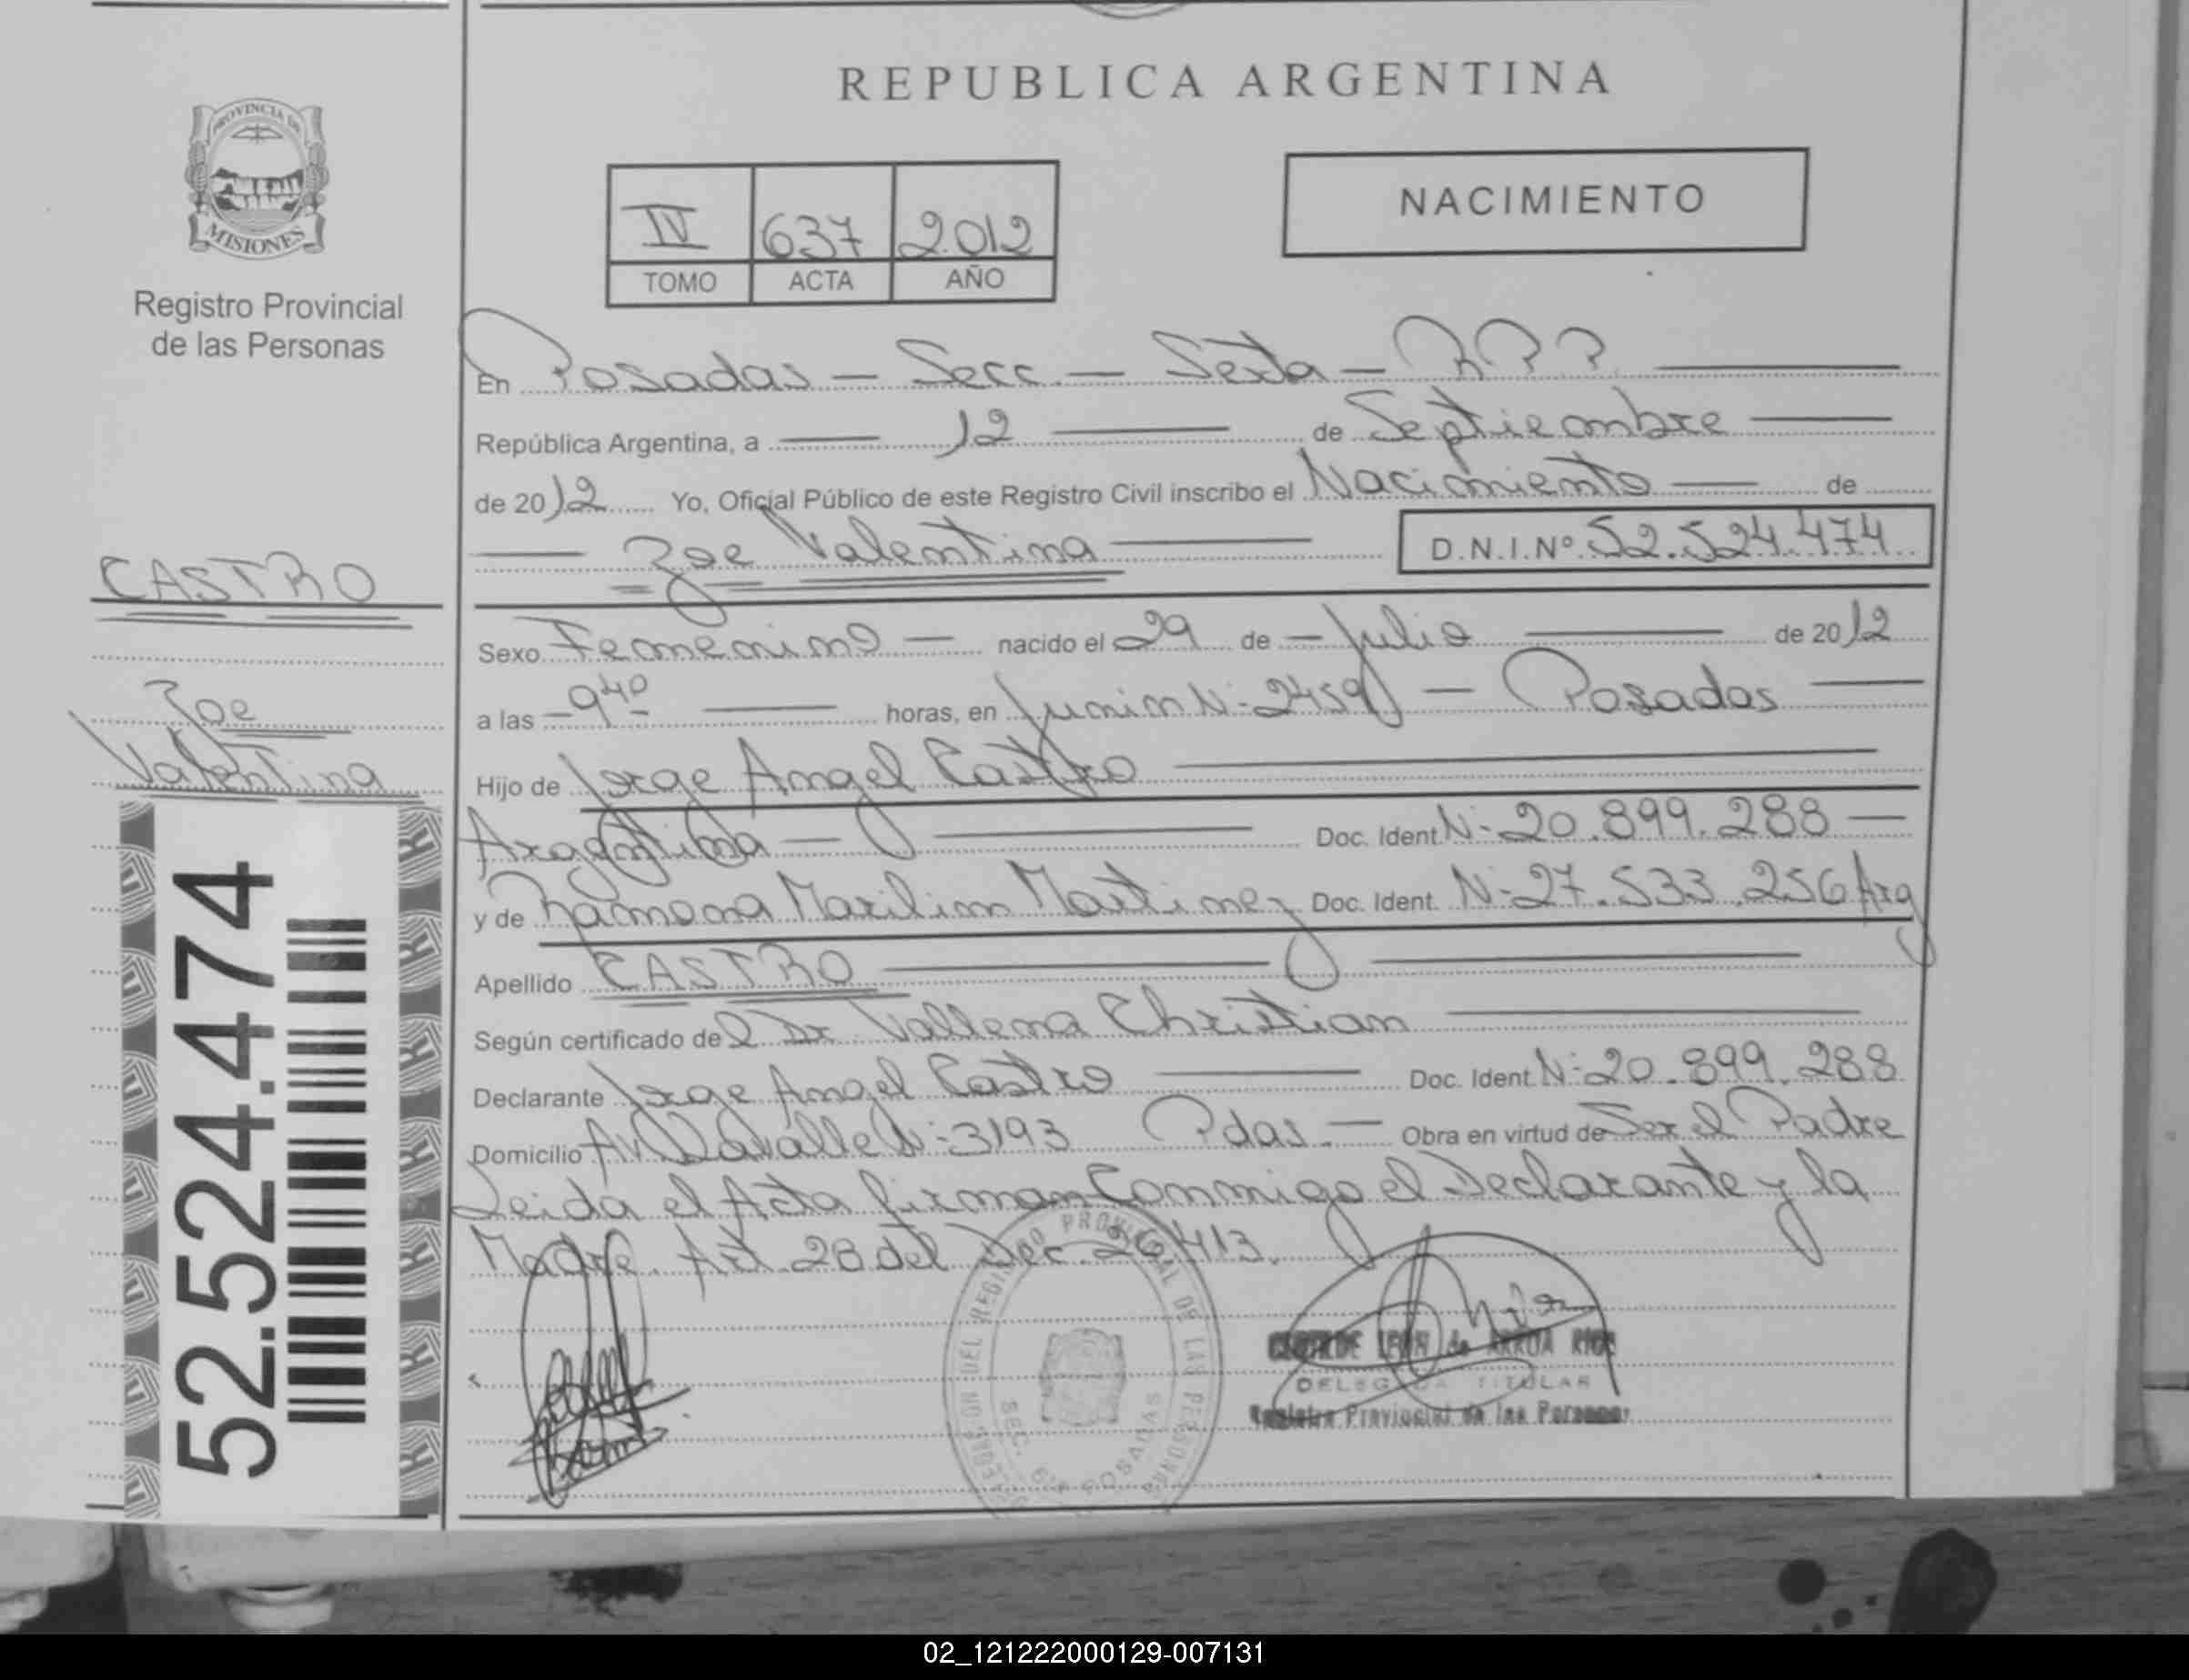 REPUBLICA ARGENTINA
PROVINCIA DE
MISIONES
Registro Provincial
de las Personas
IV 637 2.012
TOMO ACTA AÑO
NACIMIENTO
En Posadas - Secc. - Sexta - R P P.
República Argentina, a 12 de Septiembre
de 2012 Yo, Oficial Público de este Registro Civil inscribo el Nacimiento de
Zoe Valentina D.N.I.Nº 52.524.474
CASTRO
Zoe
Valentina
52.524.474
Sexo Femenino nacido el 29 de Julio de 2012
a las 9 40 horas, en Junin N: 2459 - Posadas
Hijo de Jorge Angel Castro
Argentina Doc. Ident. N: 20.899.288
y de Ramona Marilin Martinez Doc. Ident. N: 27.533.256 Arg
Apellido CASTRO
Según certificado del Dr. Christian
Declarante Jorge Angel Castro Doc. Ident. N: 20.899.288
Domicilio Av. Lavalle N: 3193 Pdas. Obra en virtud de Ser el Padre
Leida el Acta firman Conmigo el Declarante y la
Madre. Art. 28 del Dec. 26.413.
DEL REGISTRO PROVINCIAL DE LAS PERSONAS
SEC. 6ta POSADAS
LEON de ARRUA RIOS
DELEGADA TITULAR
Registro Provincial de las Personas
02_121222000129-007131